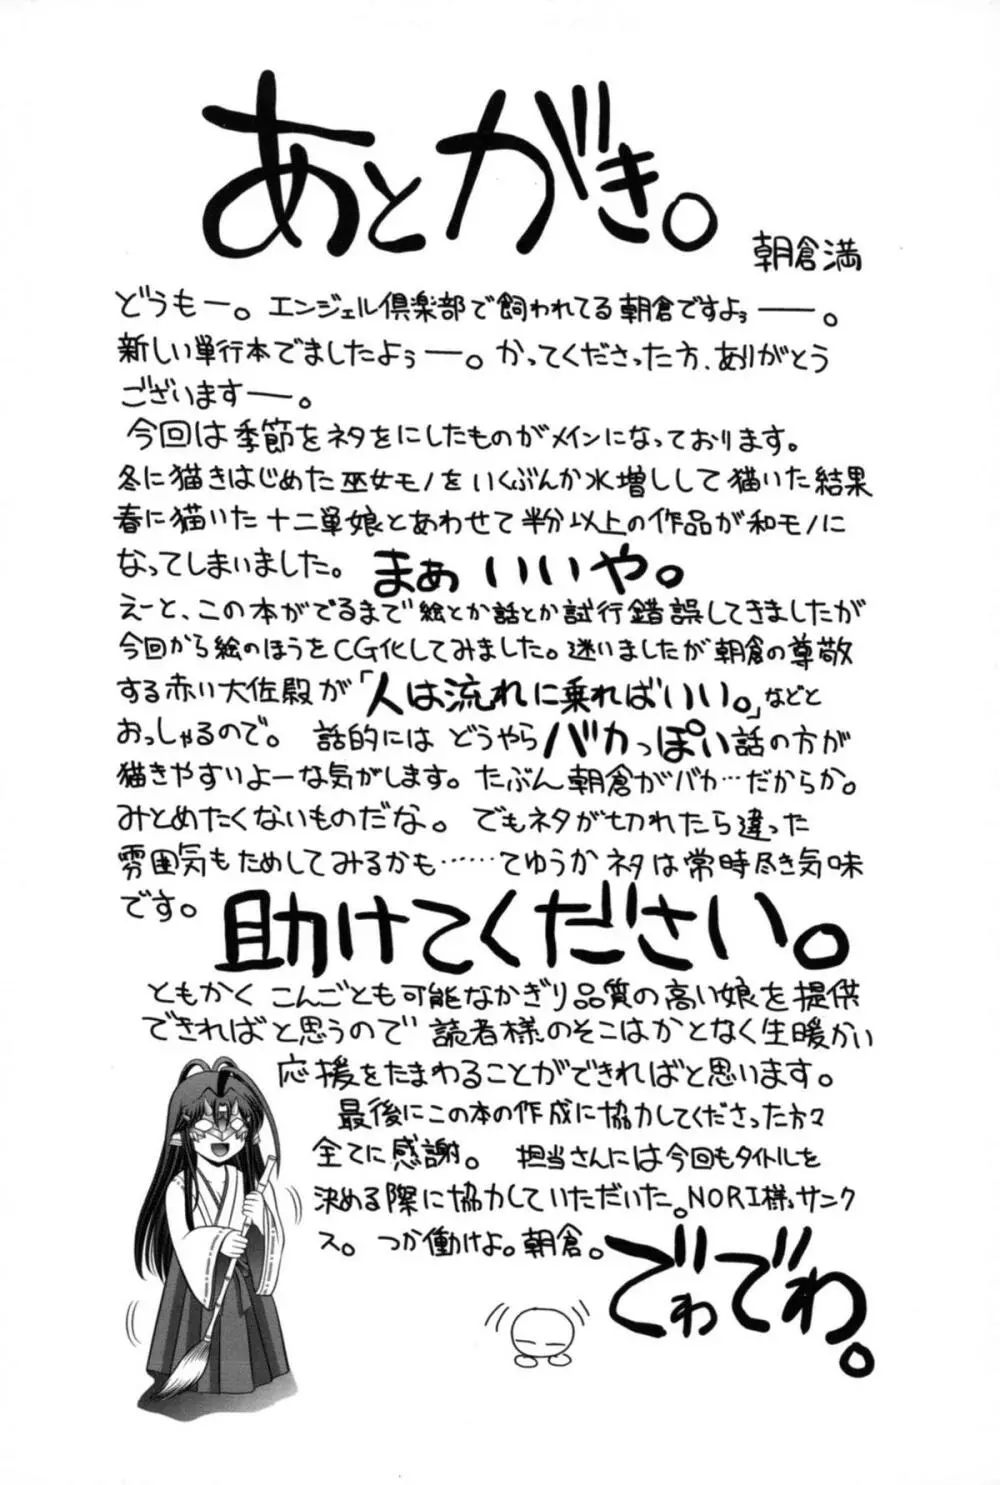 あとがき。
朝倉満
どうもー。エンジェル倶楽部で飼われてる朝倉ですよぅ──。
新しい単行本でましたよぅー。かってくださった方、ありがとう
ございますー。
今回は季節をネタをにしたものがメインになっております。
冬に猫きはじめた巫女モノをいくぶんか水増しして猫いた結果
春に猫いた十二単娘とあわせて半分以上の作品が和モノに
なってしまいました。まぁいいや。
えーと、この本がでるまで絵とか話とか試行錯誤してきましたが
今回から絵のほうをCG化してみました。迷いましたが朝倉の尊敬
する赤い大佐殿が「人は流れに乗ればいい。」などと
おっしゃるので。話的にはどうやらバカっぽい話の方が
猫きやすいよーな気がします。たぶん朝倉がバカ…だからか。
みとめたくないものだな。でもネタが切れたら違った
雰囲気もためしてみるかも……てゆうかネタは常時尽き気味
です。助けてください。
ともかくこんごとも可能なかぎり品質の高い娘を提供
できればと思うので読者様のそこはかとなく生暖かい
応援をたまわることができればと思います。
最後にこの本の作成に協力してくださった方々
全てに感謝。担当さんには今回もタイトルを
決める際に協力していただいた。NORI様、サンク
ス。つか働けよ。朝倉。でわでわ。